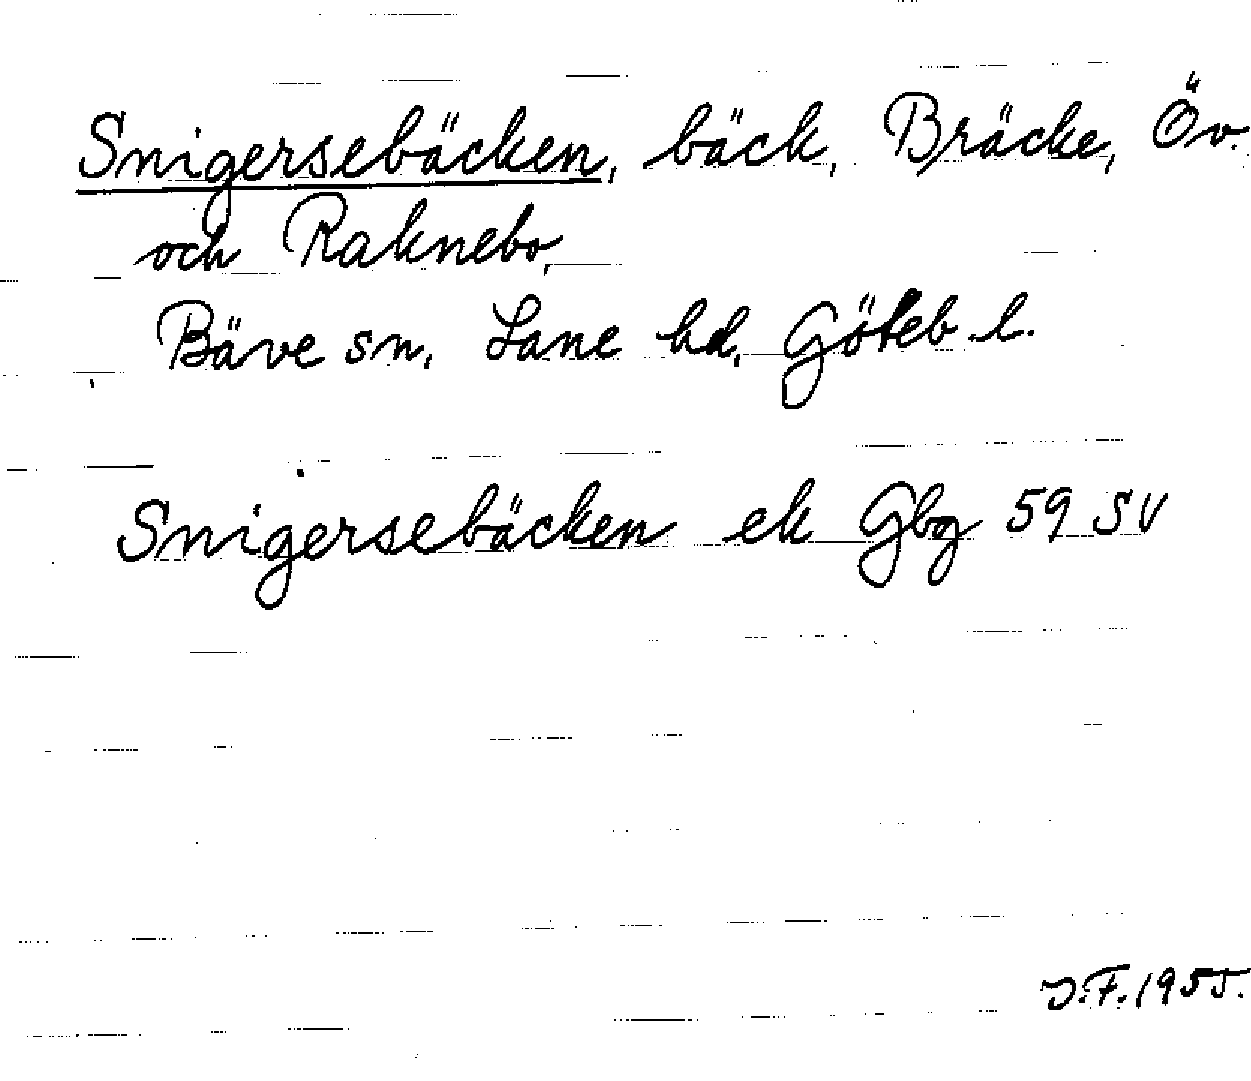 Snigersebäcken, bäck, Bräcke, Öv.
och Raknebo,
Bäve sn, Lane hd, Göteb l.
Snigersebäcken ek Gbg 59 SV
J.F. 1955.